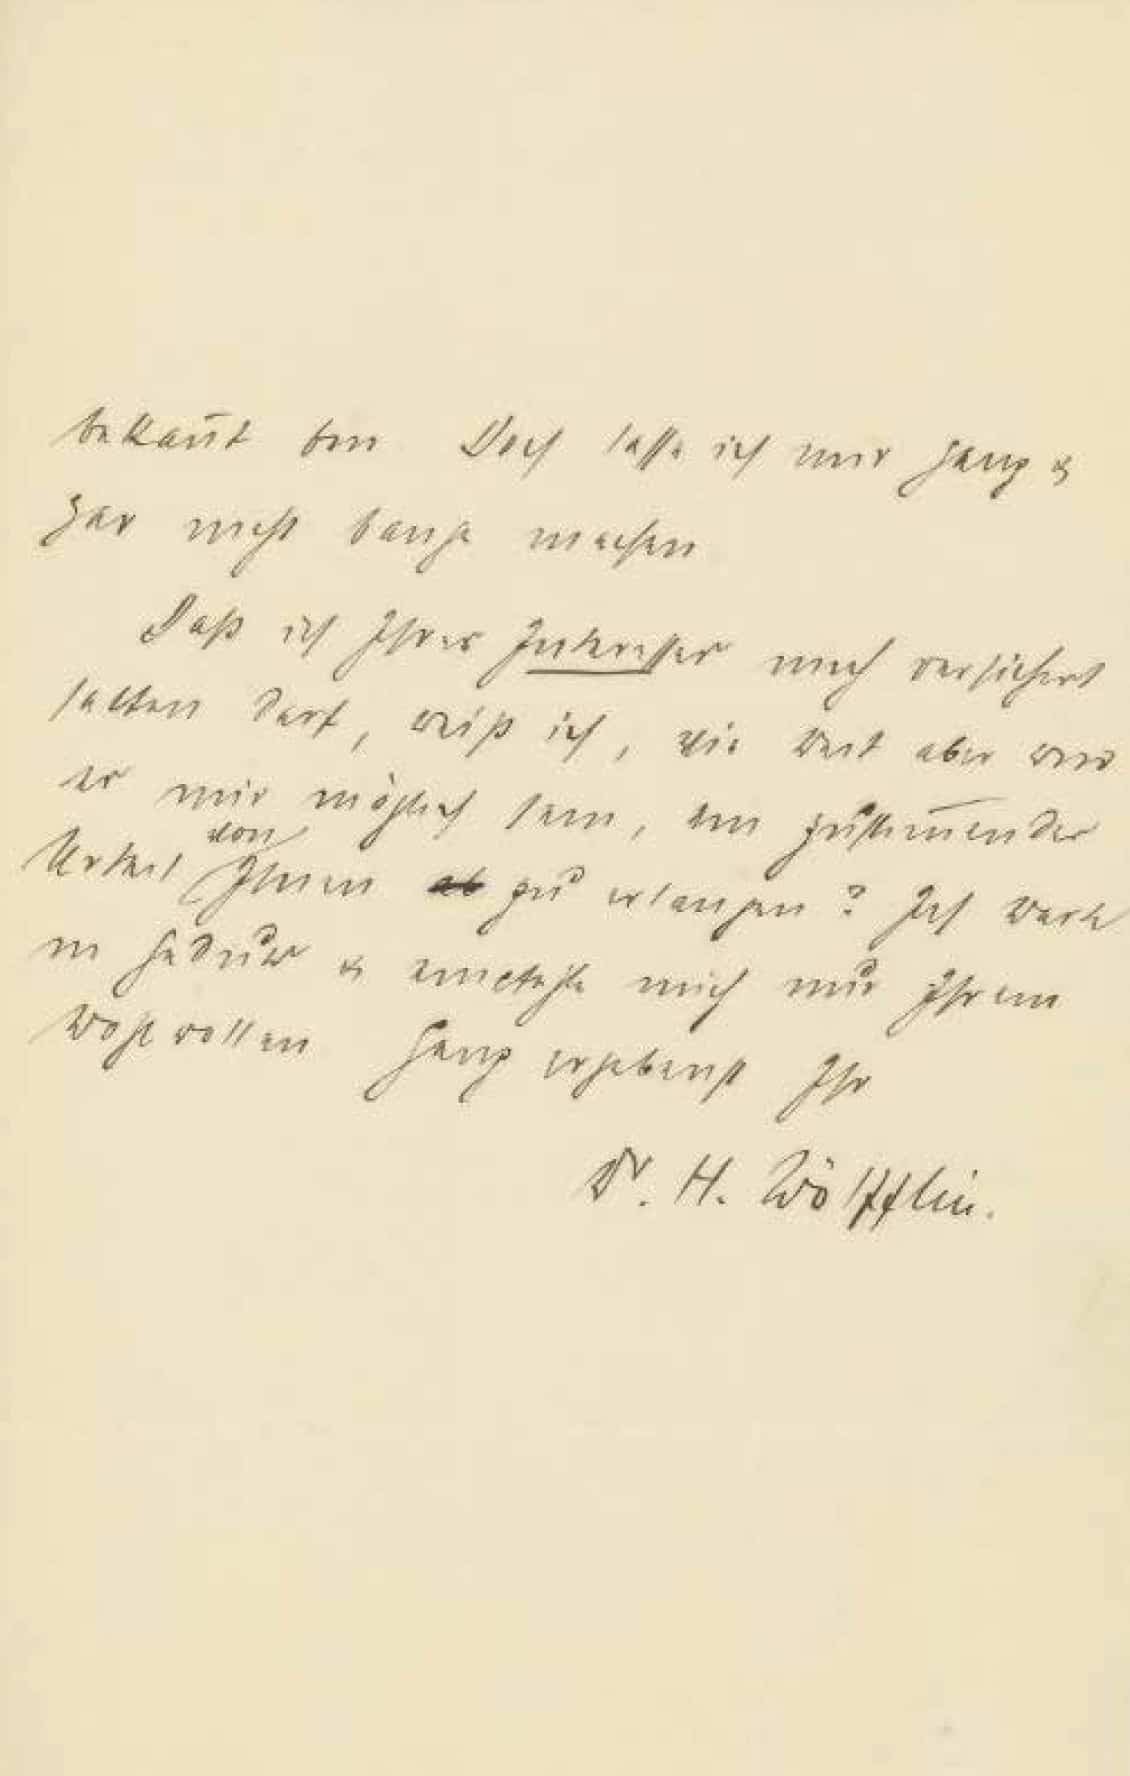 bekan̄t bin. Doch lasse ich mir ganz &
gar nicht bange machen
Daß ich Ihres Interesses mich versichert
halten darf, weiß ich, wie weit aber wird
es mir möglich sein, ein zustim̄endes
Urteil von Ihnen zu erlangen? Ich warte
in Geduld & empfehle mich nur Ihrem
Wohlwollen Ganz ergebenst Ihr
Dr. H. Wölfflin.